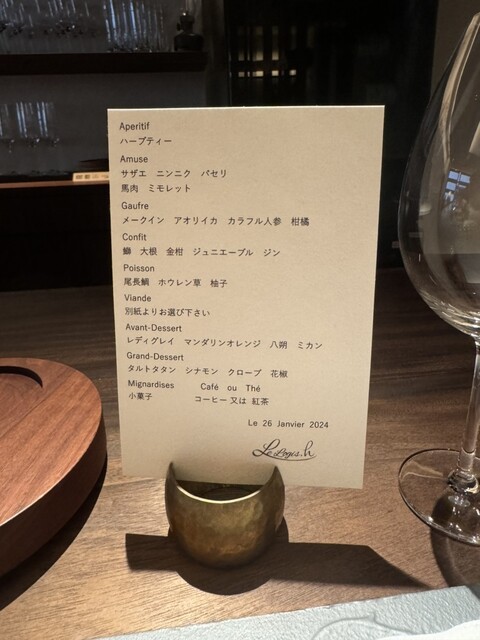 Aperitif
ハーブティー
Amuse
サザエ　ニンニク　パセリ
馬肉　ミモレット
Gaufre
メークイン　アオリイカ　カラフル人参　柑橘
Confit
鰤　大根　金柑　ジュニエーブル　ジン
Poisson
尾長鯛　ホウレン草　柚子
Viande
別紙よりお選び下さい
Avant-Dessert
レディグレイ　マンダリンオレンジ　八朔　ミカン
Grand-Dessert
タルトタタン　シナモン　クローブ　花椒
Mignardises　Café ou Thé
小菓子　コーヒー又は 紅茶
Le 26 Janvier 2024
Le Logis.h